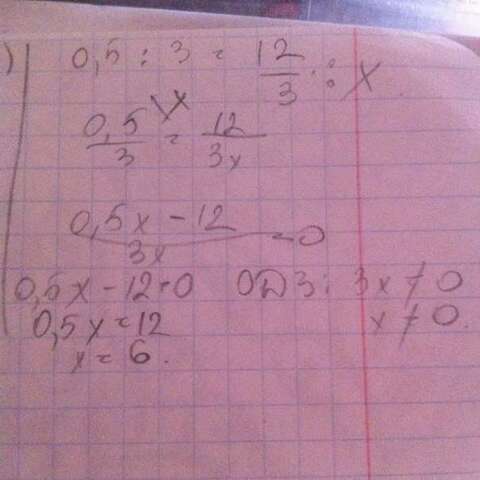 ) 0,5 : 3 = 12/3 : x
x
0,5/3 = 12/3x
0,5x - 12/3x = 0
0,5x - 12 = 0 ОДЗ: 3x ≠ 0
0,5x = 12 x ≠ 0.
x = 6.